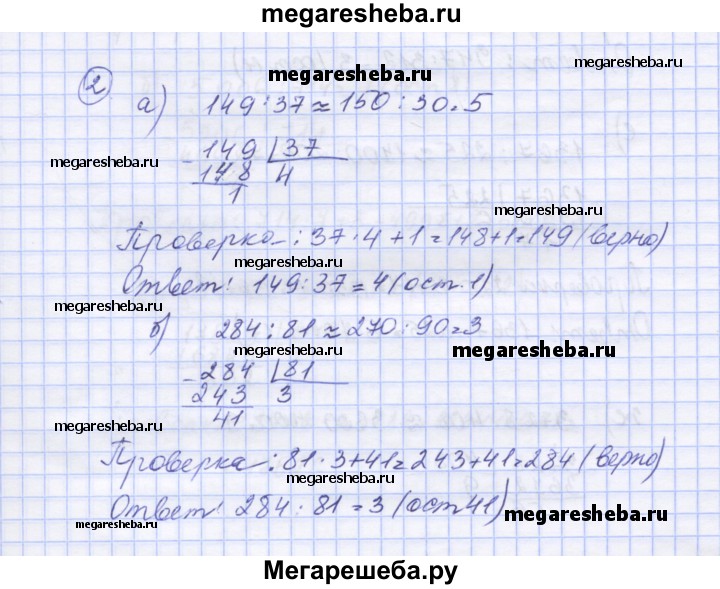 megaresheba.ru
2
megaresheba.ru
а) 149:37≈150:30=5
megaresheba.ru
149 37
148 4
1
megaresheba.ru
Проверка: 37·4+1=148+1=149 (верно)
megaresheba.ru
Ответ: 149:37=4 (ост.1)
megaresheba.ru
б) 284:81≈270:90=3
megaresheba.ru
megaresheba.ru
284 81
243 3
41
megaresheba.ru
megaresheba.ru
Проверка: 81·3+41=243+41=284 (верно)
megaresheba.ru
Ответ: 284:81=3 (ост 41)
megaresheba.ru
megaresheba.ru
Мегарешеба.ру